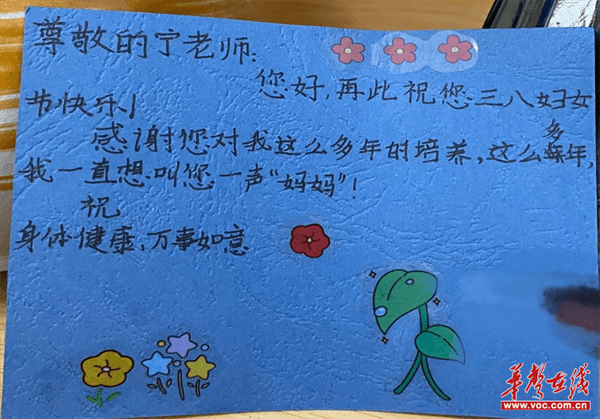 尊敬的宁老师:
您好,再此祝您三八妇女
节快乐!
感谢您对我这么多年的培养,这么多年,
我一直想叫您一声“妈妈”!
祝
身体健康,万事如意
华声在线
www.voc.com.cn